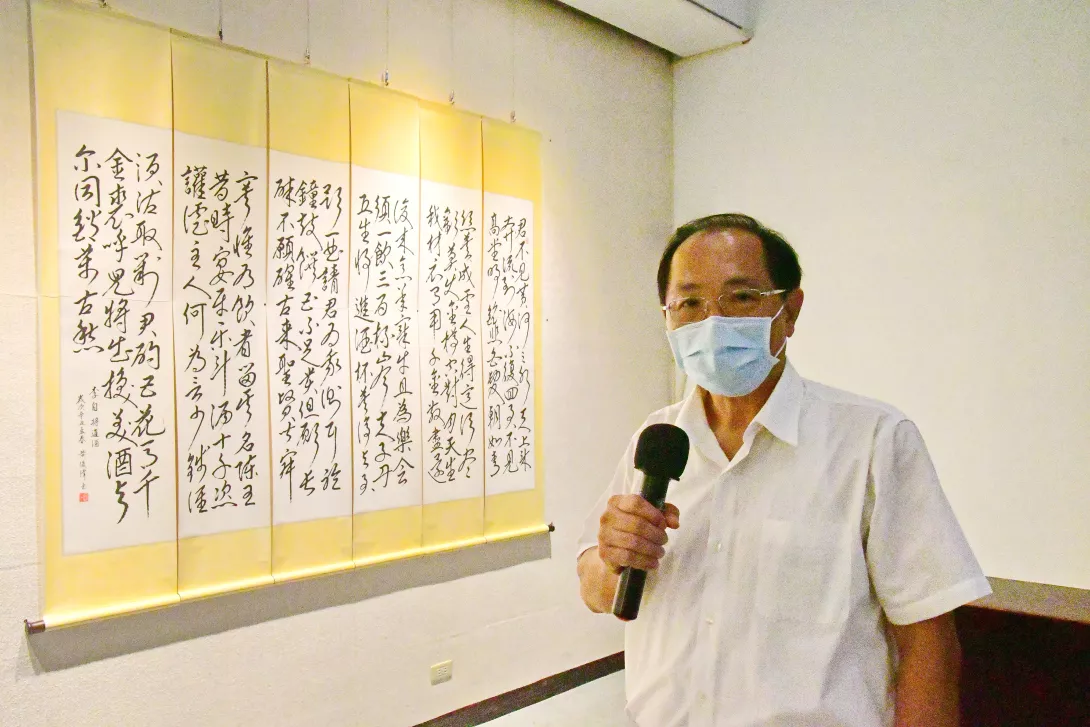 君不見黃河之水天上來
奔流到海不復回君不見
高堂明鏡悲白髮朝如青
絲暮成雪人生得意須盡
歡莫使金樽空對月天生
我材必有用千金散盡還
復來烹羊宰牛且為樂會
須一飲三百杯岑夫子丹
丘生將進酒杯莫停與君
歌一曲請君為我側耳聽
鐘鼓饌玉不足貴但願長
醉不願醒古來聖賢皆寂
寞惟有飲者留其名陳王
昔時宴平樂斗酒十千恣
讙謔主人何為言少錢徑
須沽取對君酌五花馬千
金裘呼兒將出換美酒與
尔同銷萬古愁
李白 將進酒
歲次辛丑孟春